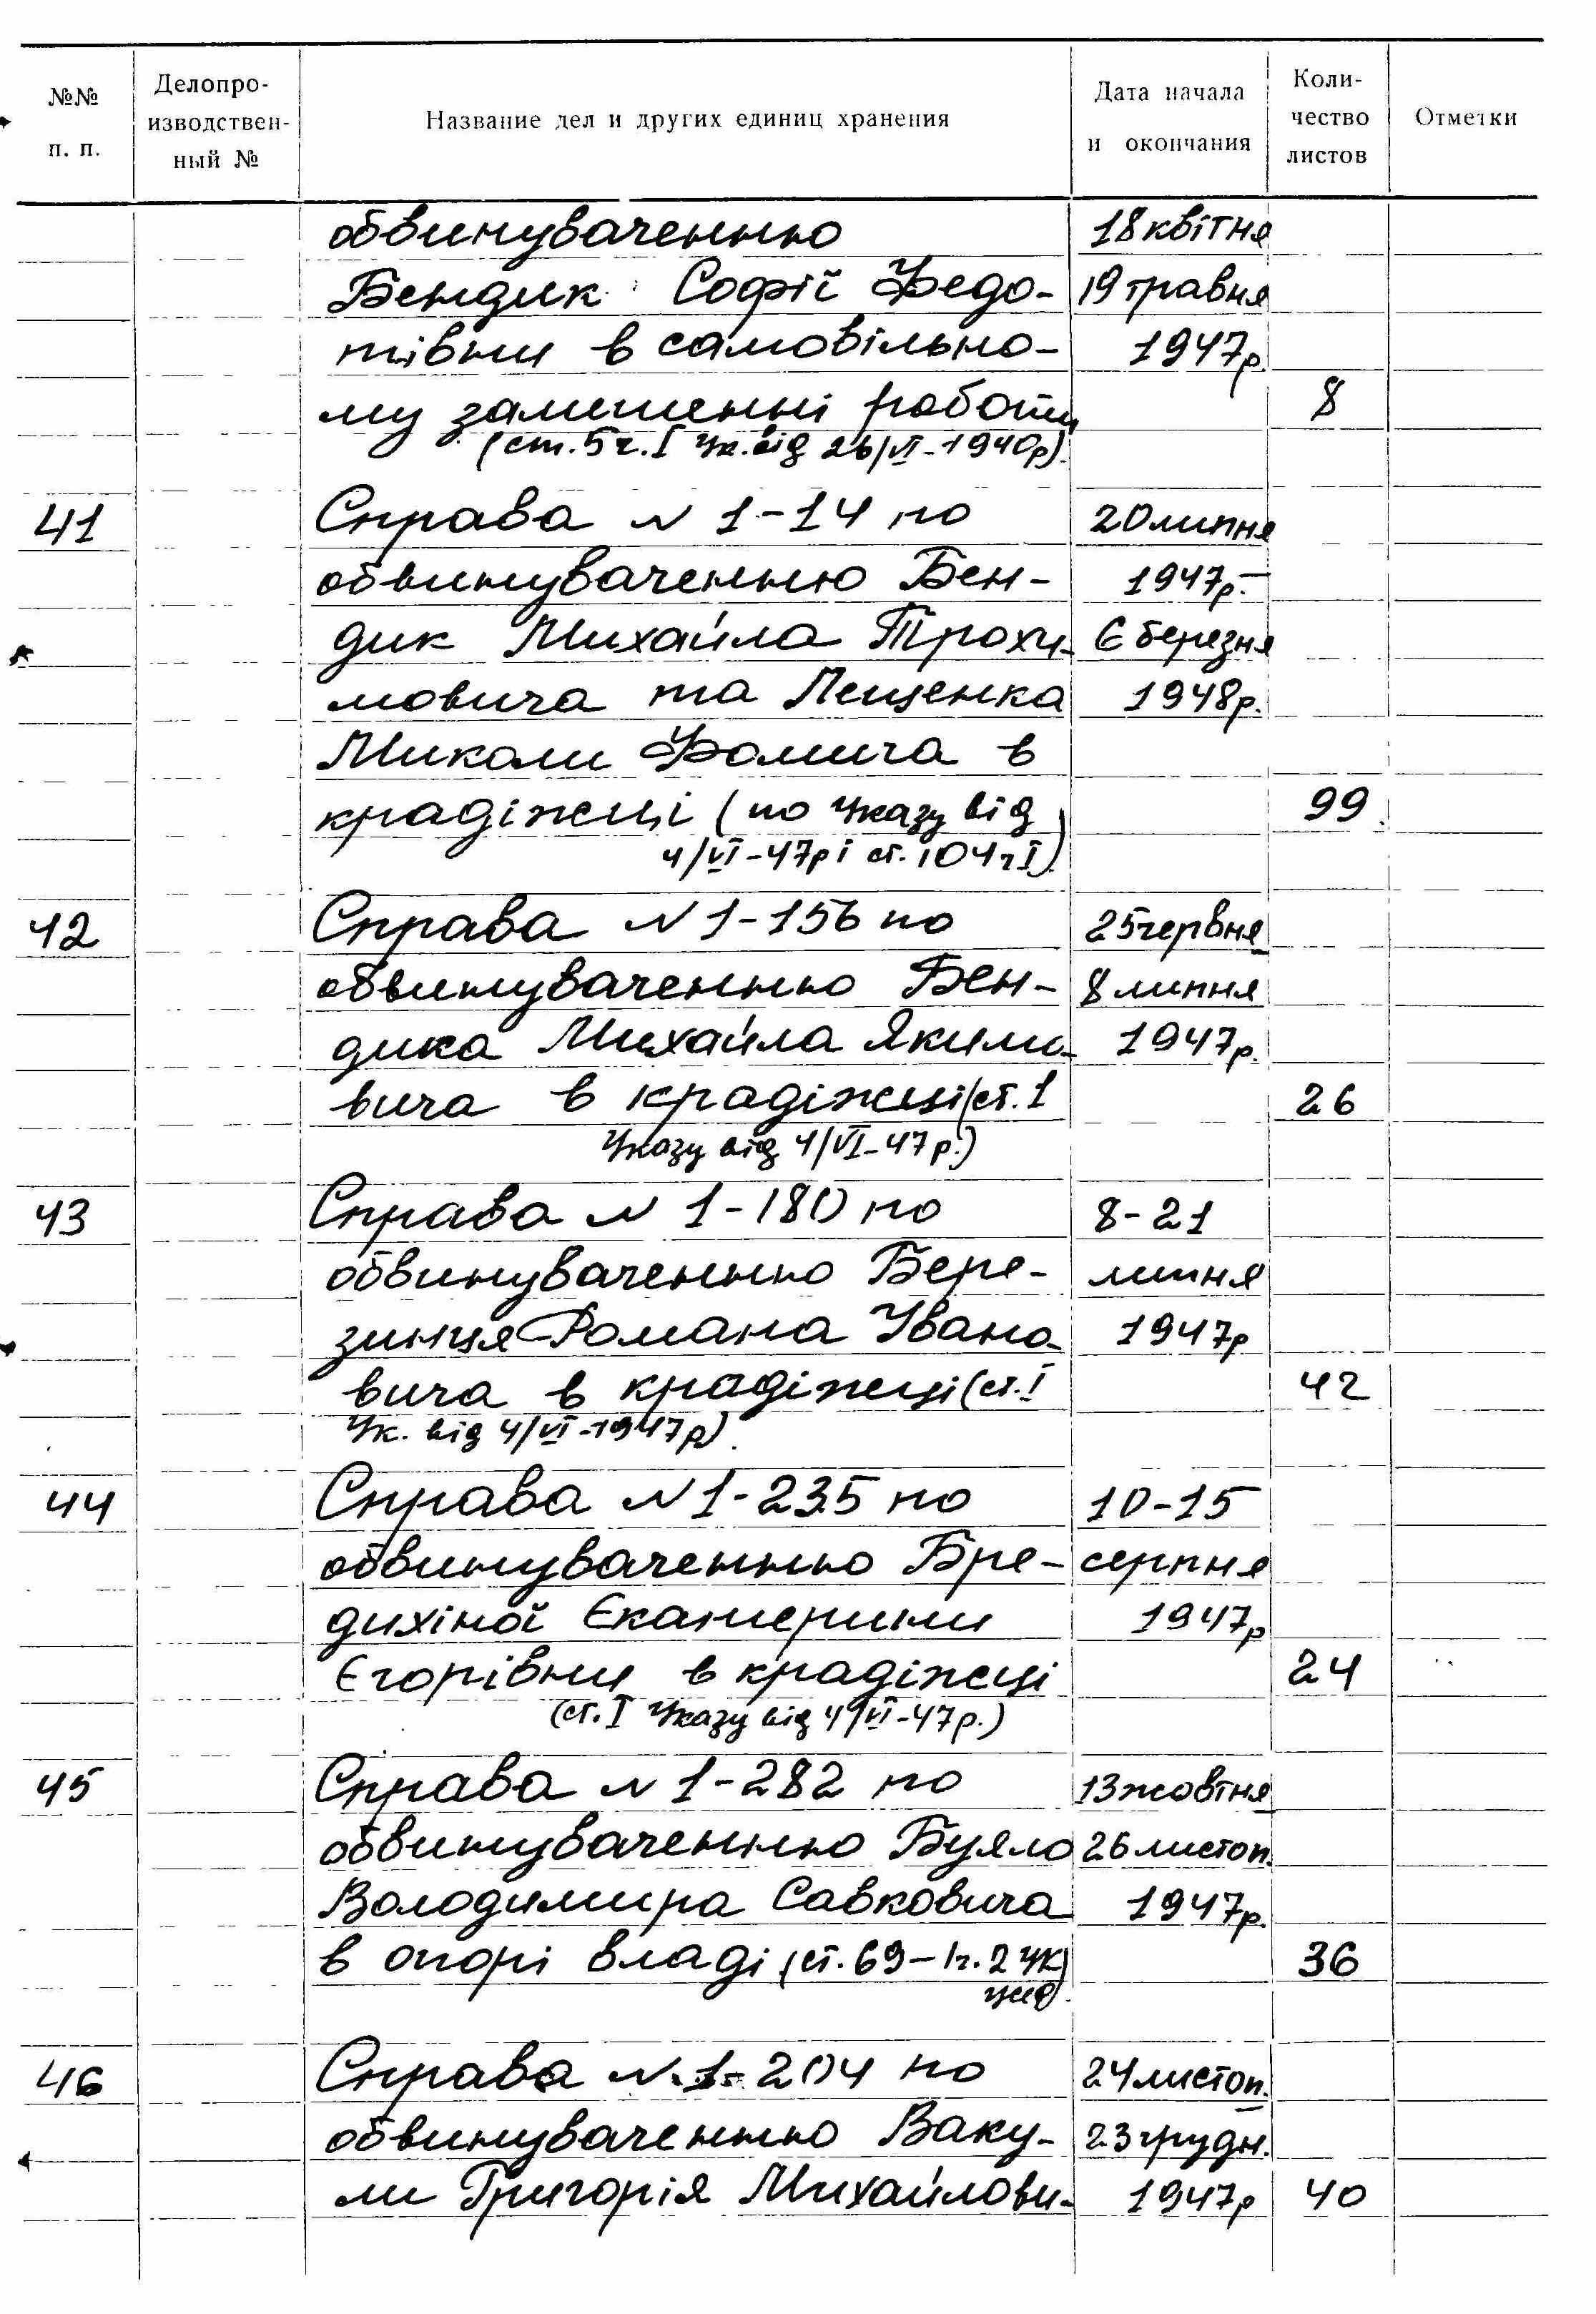 №№ п. п. Делопроизводственный № Название дел и других единиц хранения Дата начала и окончания Количество листов Отметки
обвинуваченню 18 квітня
Бендик Софії Федо- 19 травня
тівни в самовільно- 1947р.
му залишенні роботи 8
(ст. 5 ч. I Ук. від 26/VI-1940р).
41 Справа N 1-14 по 20 липня
обвинуваченню Бен- 1947р.-
дик Михайла Трохи- 6 березня
мовича та Лещенка 1948р.
Миколи Фомича в
крадіжці (по Указу від 99
4/VI-47р і ст. 104 ч I)
42 Справа N 1-156 по 25 червня
обвинуваченню Бен- 8 липня
дика Михайла Якимо- 1947р.
вича в крадіжці (ст. 1 26
Указу від 4/VI-47р.)
43 Справа N 1-180 по 8-21
обвинуваченню Бере- липня
зинця Романа Івано- 1947р
вича в крадіжці (ст. I 42
Ук. від 4/VI-1947р).
44 Справа N 1-235 по 10-15
обвинуваченню Бре- серпня
дихіної Єкатерини 1947р
Єгорівни в крадіжці 24
(ст. I Указу від 4/VI-47р.)
45 Справа N 1-282 по 13 жовтня
обвинуваченню Буяло 26 листоп.
Володимира Савковича 1947р.
в опорі владі (ст. 69-1 ч. 2 УК 36
46 Справа N 1-204 по 24 листоп.
обвинуваченню Ваку- 23 грудн.
ли Григорія Михайлови- 1947р 40